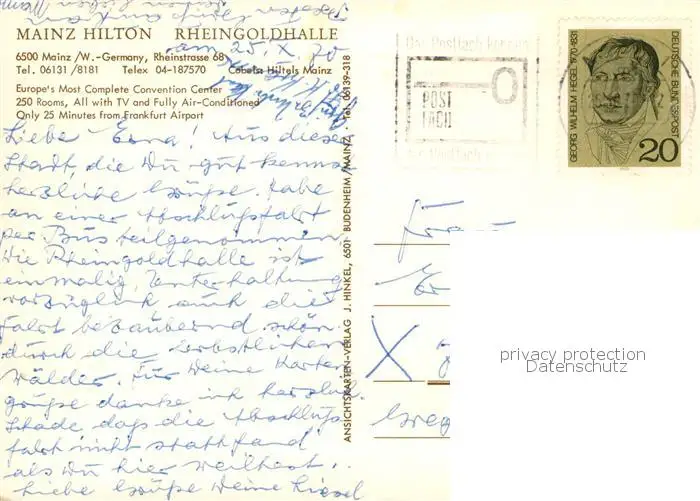 MAINZ HILTON RHEINGOLDHALLE
am 25. X. 70
6500 Mainz /W.-Germany, Rheinstrasse 68
Tel. 06131 /8181 Telex 04-187570 Cables: Hiltels Mainz
Europe's Most Complete Convention Center
250 Rooms, All with TV and Fully Air-Conditioned
Only 25 Minutes from Frankfurt Airport
Liebe Erna! Aus dieser
Stadt, die Du gut kennst
herzliche Grüße. Habe
an einer Abschlußfahrt
per Bus teilgenommen
Die Rheingoldhalle ist
einmalig, Unterhaltung
vorzüglich auch die
Fahrt bezaubernd schön.
durch die herbstlichen
Wälder. Für Deine Karten
grüße danke ich herzlich
Schade daß die Abschluß
fahrt nicht stattfand
als Du hier weiltest.
Liebe Grüße Deine Liesel
ANSICHTSKARTEN-VERLAG J. HINKEL, 6501 BUDENHEIM/MAINZ · Tel. 06139-318
POST
FACH
GEORG WILHELM HEGEL 1770-1831
DEUTSCHE BUNDESPOST
20
Frau
Er
X
Greg
privacy protection
Datenschutz